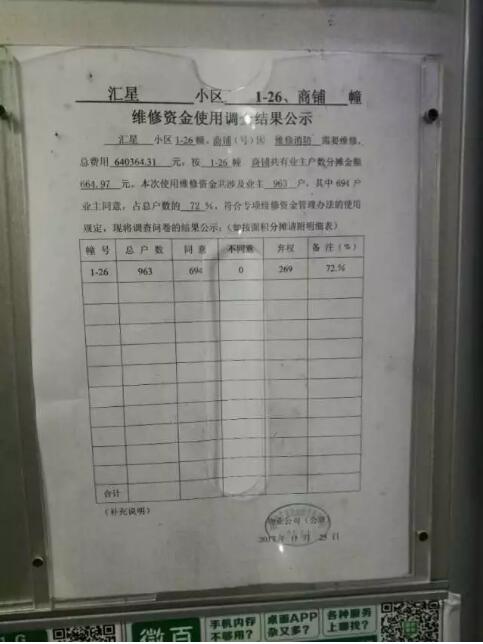 汇星 小区 1-26、商铺 幢
维修资金使用调查结果公示
汇星 小区 1-26 幢、商铺(号)因 维修消防 需要维修,
总费用 640364.31 元,按 1-26 幢 商铺共有业主户数分摊金额
664.97 元。本次使用维修资金共涉及业主 963 户,其中 694 户
业主同意,占总户数的 72 %,符合专项维修资金管理办法的使用
规定,现将调查问卷的结果公示:(如按面积分摊请附明细表)
幢号 总户数 同意 不同意 弃权 备注(%)
1-26 963 694 0 269 72.%
合计
(补充说明)
物业公司(公章)
25 日
微百
手机内存
不够用?
桌面APP
杂又多?
各种服务
上哪找?